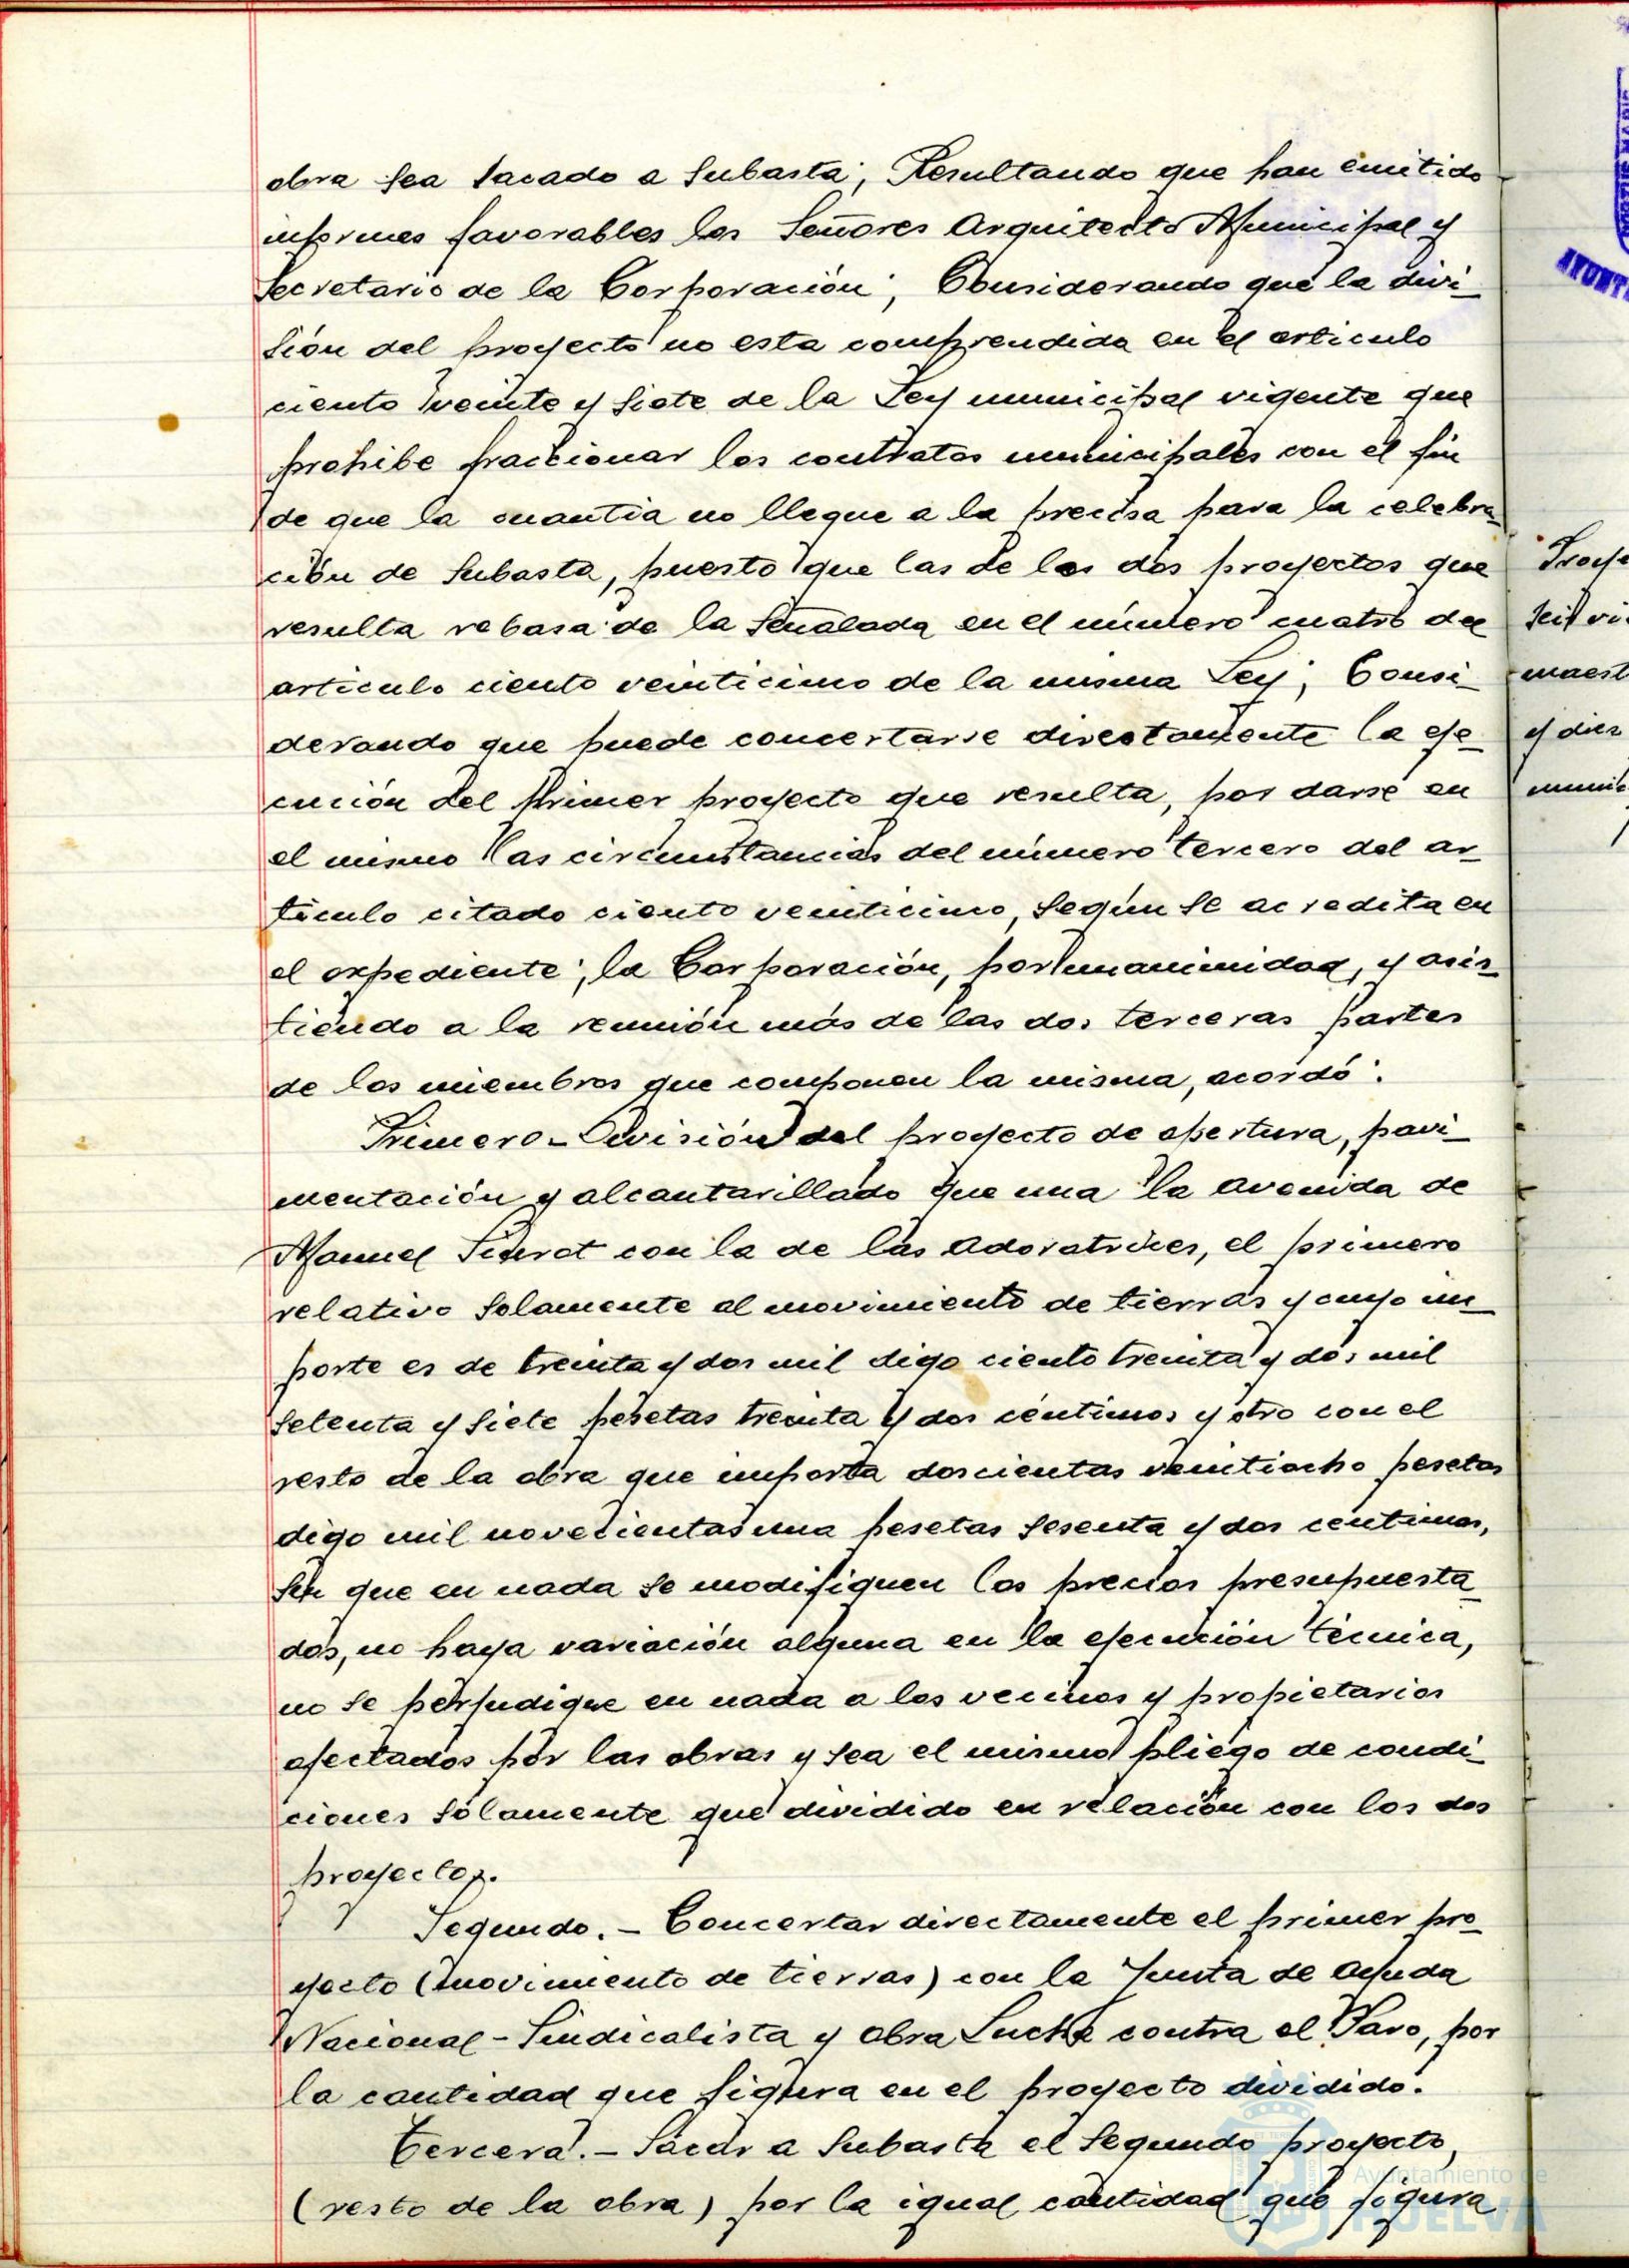 obra sea sacado a subasta; Resultando que han emitido
informes favorables los Señores Arquitecto Municipal y
Secretario de la Corporación; Considerando que la divi-
sión del proyecto no esta comprendida en el articulo
ciento veinte y siete de la Ley municipal vigente que
prohibe fraccionar los contratos municipales con el fin
de que la cuantia no llegue a la precisa para la celebra-
ción de subasta, puesto que las de los dos proyectos que
resulta rebasa de la señalada en el número cuatro del
articulo ciento veinticinco de la misma Ley; Consi-
derando que puede concertarse directamente la eje-
cución del primer proyecto que resulta, por darse en
el mismo las circunstancias del número tercero del ar-
ticulo citado ciento veinticinco, según se acredita en
el expediente; la Corporación, por unanimidad, y asis-
tiendo a la reunión más de las dos terceras partes
de los miembros que componen la misma, acordó:
Primero-División del proyecto de apertura, pavi-
mentación y alcantarillado que una la avenida de
Manuel Siurot con la de las Adoratrices, el primero
relativo solamente al movimiento de tierras y cuyo im-
porte es de treinta y dos mil digo ciento treinta y dos mil
setenta y siete pesetas treinta y dos céntimos y otro con el
resto de la obra que importa doscientas veintiocho pesetas
digo mil novecientas una pesetas sesenta y dos centimos,
sin que en nada se modifiquen los precios presupuesta-
dos, no haya variación alguna en la ejecución técnica,
no se perjudique en nada a los vecinos y propietarios
afectados por las obras y sea el mismo pliego de condi-
ciones sólamente que dividido en relación con los dos
proyectos.
Segundo.- Concertar directamente el primer pro-
yecto (movimiento de tierras) con la Junta de Ayuda
Nacional-Sindicalista y Obra Lucha contra el Paro, por
la cantidad que figura en el proyecto dividido.
Tercera.- Sacar a subasta el segundo proyecto,
(resto de la obra) por la igual cantidad que figura
Proye
servi
maest
y diez
munic
AYUNT
Ayuntamiento de
HUELVA